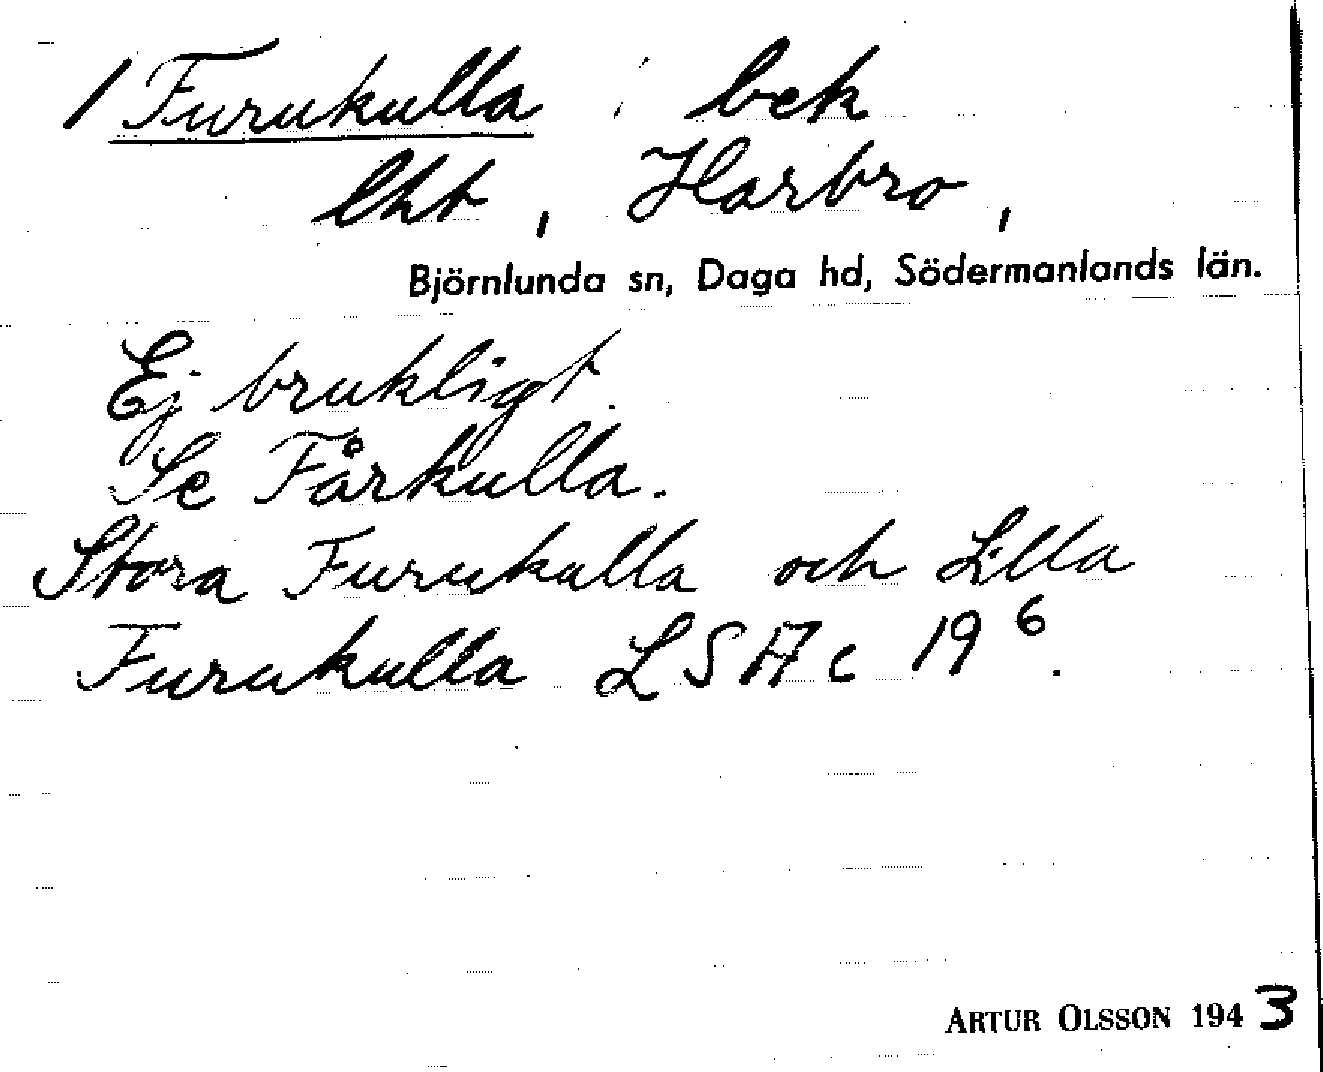 / Furukulla bek
lht, Harbro,
Björnlunda sn, Daga hd, Södermanlands län.
Ej brukligt.
Se Fårkulla.
Stora Furukulla och Lilla
Furukulla LSA c 19 6.
ARTUR OLSSON 1943